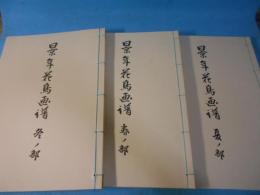 景年花鳥画譜 冬ノ部
景年花鳥画譜 春ノ部
景年花鳥画譜 夏ノ部